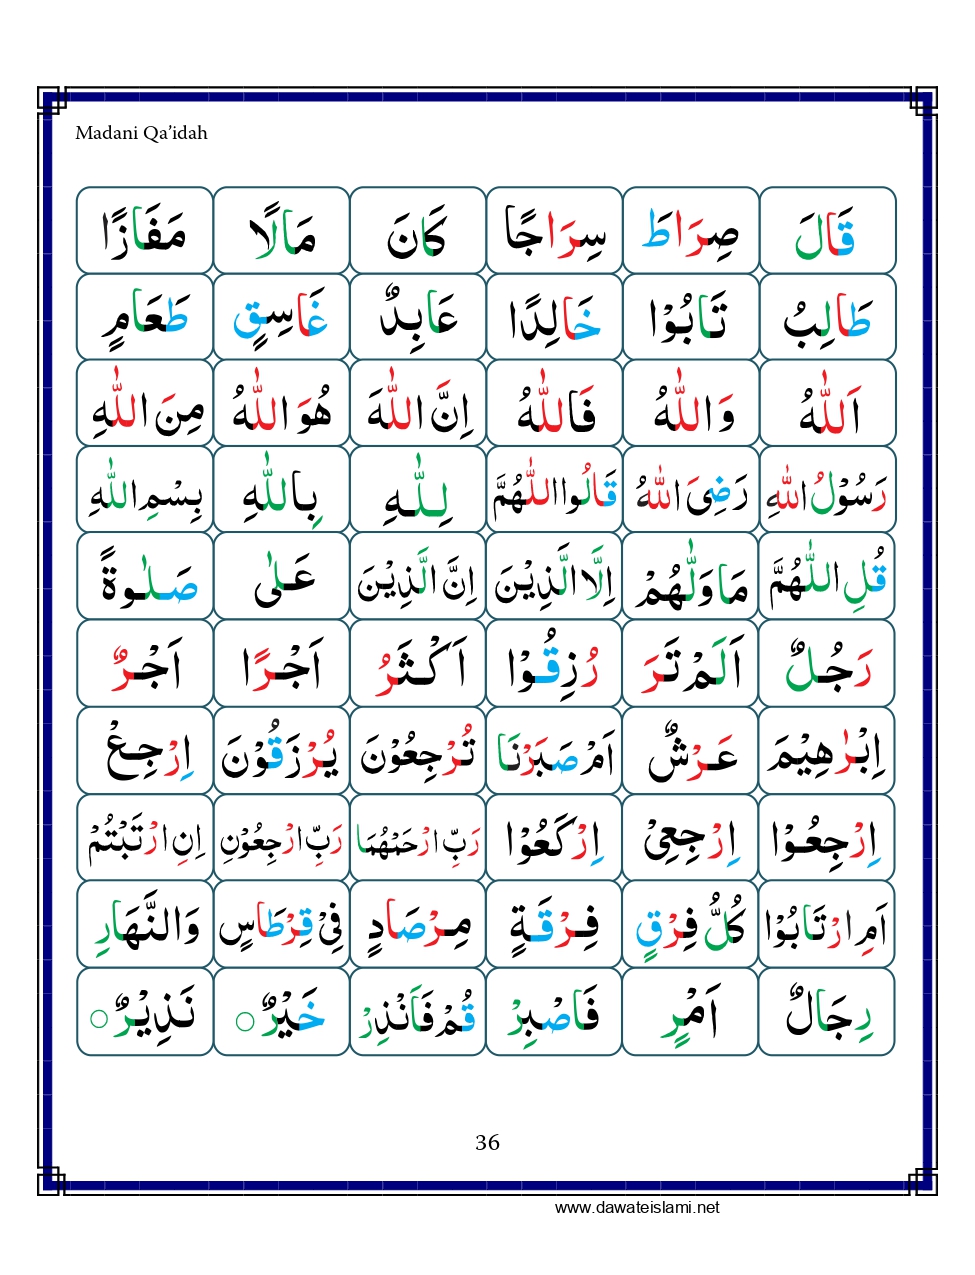 Madani Qa’idah
قَالَ صِرَاطَ سِرَاجًا كَانَ مَالًا مَفَازًا
طَالِبُ تَابُوْا خَالِدًا عَابِدٌ غَاسِقٍ طَعَامٍ
اَللّٰهُ وَاللّٰهُ فَاللّٰهُ اِنَّ اللّٰهَ هُوَ اللّٰهُ مِنَ اللّٰهِ
رَسُوْلُ اللّٰهِ رَضِیَ اللّٰهُ قَالُوا اللّٰهُمَّ لِلّٰهِ بِاللّٰهِ بِسْمِ اللّٰهِ
قُلِ اللّٰهُمَّ مَا وَلّٰهُمْ اِلَّا الَّذِیْنَ اِنَّ الَّذِیْنَ عَلٰی صَلٰوةً
رَجُلٌ اَلَمْ تَرَ رُزِقُوْا اَكْثَرُ اَجْرًا اَجْرٌ
اِبْرٰهِیْمَ عَرْشٌ اَمْ صَبَرْنَا تُرْجِعُوْنَ یُرْزَقُوْنَ اِرْجِعْ
اِرْجِعُوْا اِرْجِعِیْ اِرْكَعُوْا رَبِّ ارْحَمْهُمَا رَبِّ ارْجِعُوْنِ اِنِ ارْتَبْتُمْ
اَمِ ارْتَابُوْا كُلُّ فِرْقٍ فِرْقَةٍ مِرْصَادٍ فِیْ قِرْطَاسٍ وَالنَّهَارِ
رِجَالٌ اَمْرٍ فَاصْبِرْ قُمْ فَاَنْذِرْ خَیْرٌ ○ نَذِیْرٌ ○
36
www.dawateislami.net